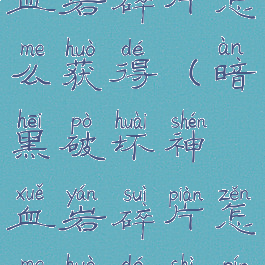 血岩碎片怎
me huò dé àn
么获得（暗
hēi pò huài shén
黑破坏神
xuě yán suì piàn zěn
血岩碎片怎
me huò dé shì xiē